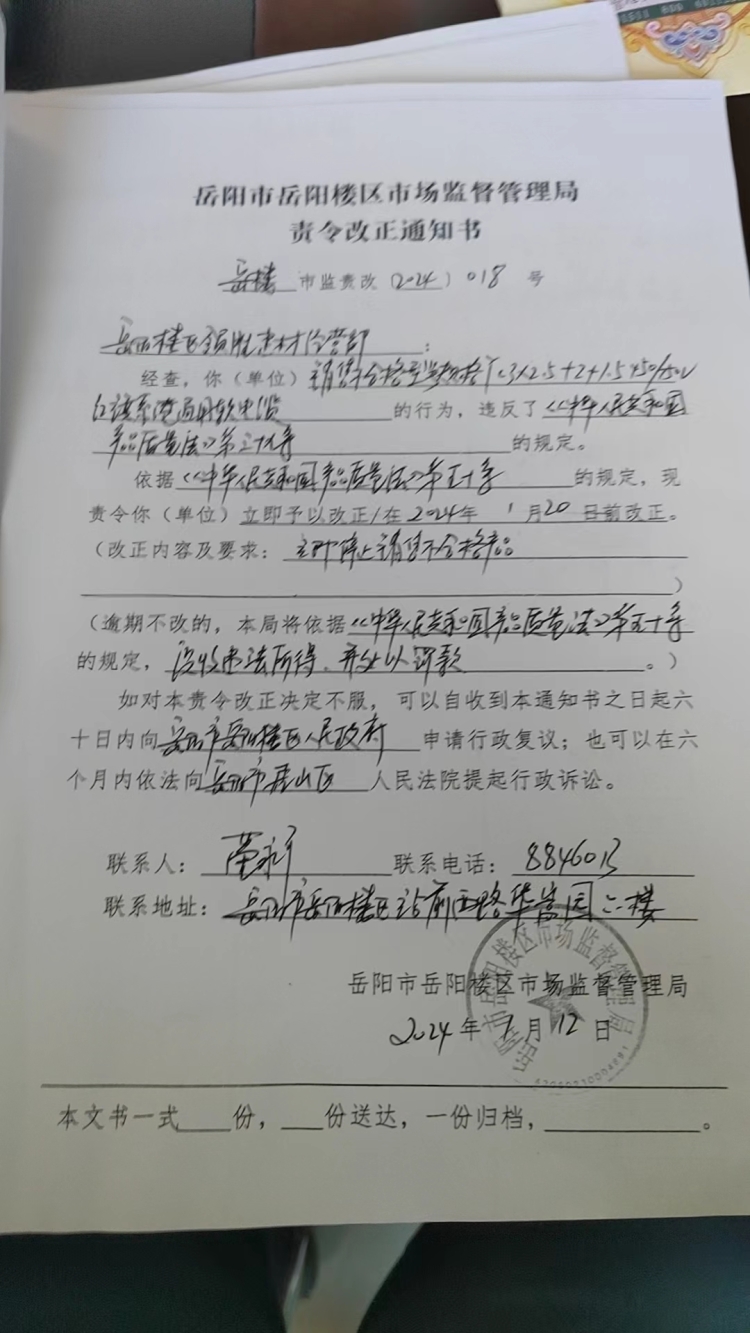 岳阳市岳阳楼区市场监督管理局
责令改正通知书
岳楼 市监责改〔2024〕018 号
岳阳楼区 建材经营部:
经查,你(单位)销售不合格型号规格 3×2.5+2×1.5 450/750V
的行为,违反了《中华人民共和国
产品质量法》第三十九条 的规定。
依据《中华人民共和国产品质量法》第五十条 的规定,现
责令你(单位)立即予以改正/在2024年 1 月20 日前改正。
(改正内容及要求:立即停止销售不合格产品
)
(逾期不改的,本局将依据《中华人民共和国产品质量法》第五十条
的规定,没收违法所得、并处以罚款 。)
如对本责令改正决定不服,可以自收到本通知书之日起六
十日内向岳阳市岳阳楼区人民政府 申请行政复议;也可以在六
个月内依法向岳阳市君山区 人民法院提起行政诉讼。
联系人: 联系电话:
联系地址:岳阳市岳阳楼区站前西路 园二楼
岳阳市岳阳楼区市场监督管理局
2024年1月12日
岳阳市岳阳楼区市场监督管理局
本文书一式 份, 份送达,一份归档, 。